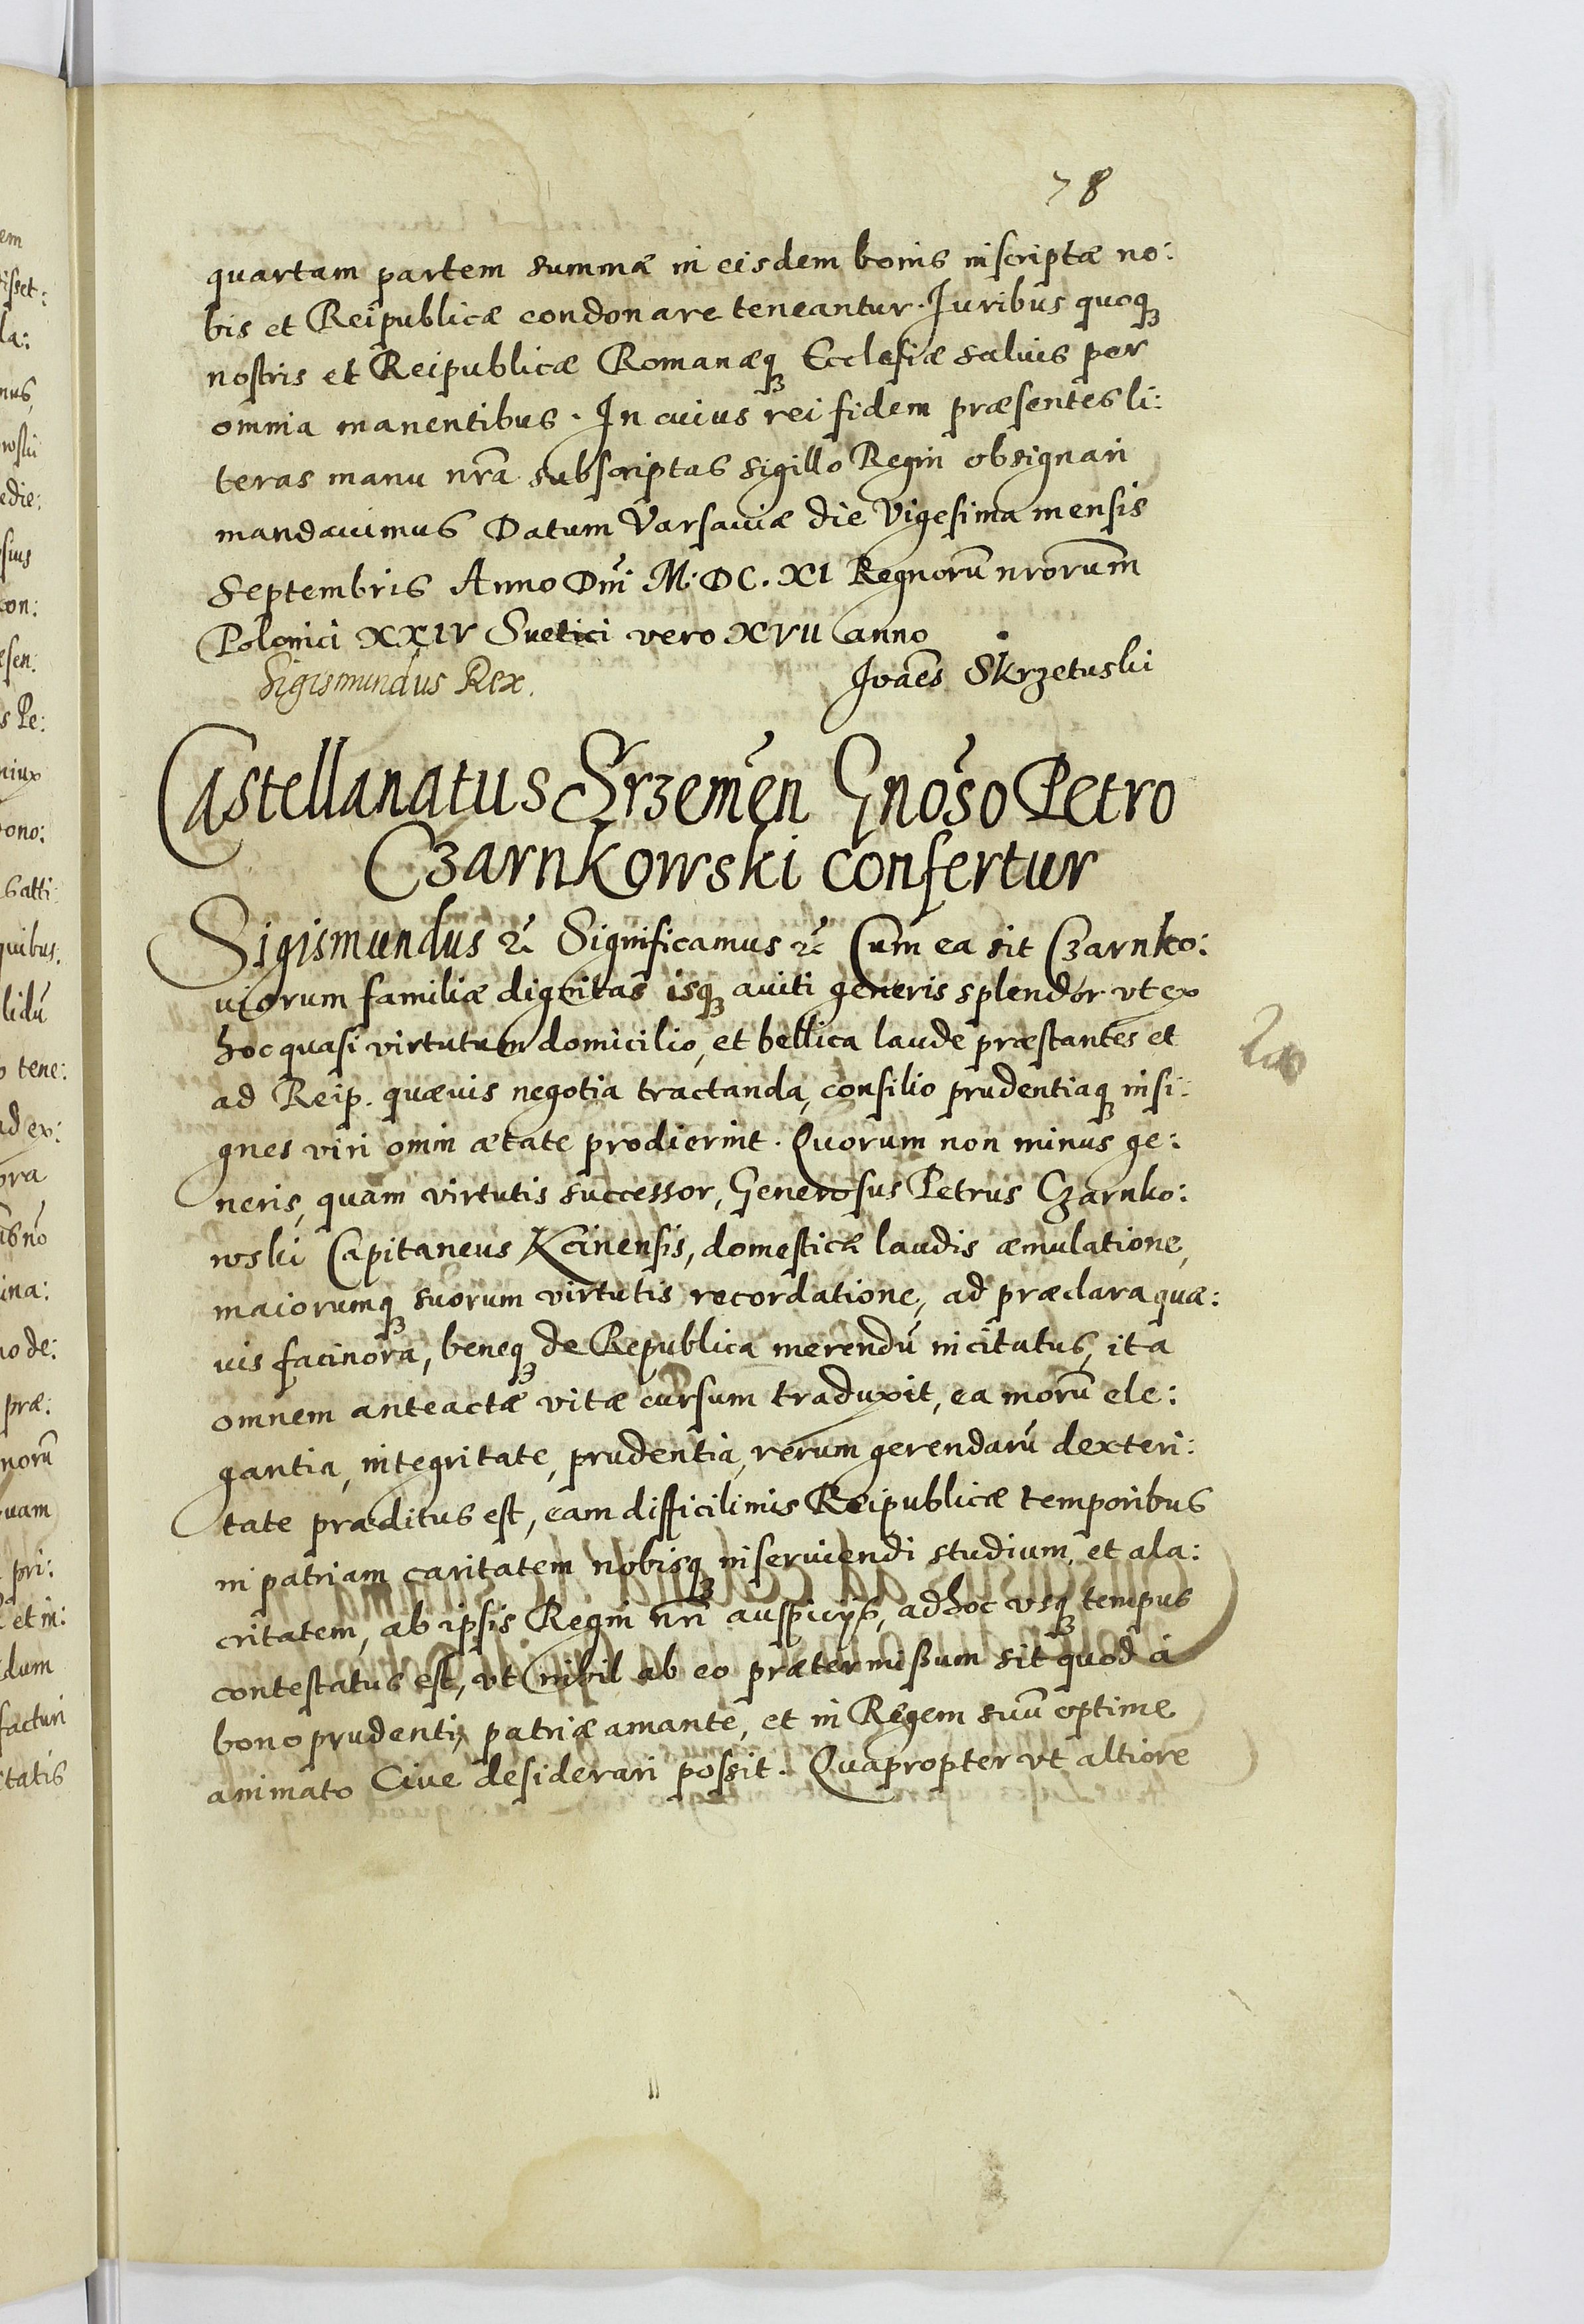 78
quartam partem summæ in eisdem bonis inscriptæ no:
bis et Reipublicæ condonare teneantur. Iuribus quoqꝫ
nostris et Reipublicæ Romanæqꝫ Ecclesiæ saluis per
omnia manentibus. In cuius rei fidem præsentes li:
teras manu nrã subscriptas sigillo Regni obsignari
mandauimus Datum Varsauiæ die Vigesima mensis
Septembris Anno Dnĩ M.DC.XI Regnorũ nrorum̃
Polonici XXIV Suetici vero XVII anno
Sigismundus Rex. Ioães Skrzetuski
Castellanatus Srzemẽn Gnõso Petro
Czarnkowski confertur
Sigismundus &c Significamus &c Cum ea sit Czarnko:
uiorum familiæ dignitas isqꝫ auiti generis splendor vt ex
hoc quasi virtutum domicilio, et bellica laude præstantes et
ad Reip. quæuis negotia tractanda, consilio prudentiaqꝫ insi:
gnes viri omni ætate prodierint. Quorum non minus ge:
neris, quam virtutis successor, Generosus Petrus Czarnko:
wski Capitaneus Kcinensis, domesticæ laudis æmulatione,
maiorumqꝫ suorum virtutis recordatione, ad præclara quæ:
uis facinora, beneqꝫ de Republica merendũ incitatus, ita
omnem anteactæ vitæ cursum traduxit, ea morũ ele:
gantia, integritate, prudentia, rerum gerendarũ dexteri:
tate præditus est, eam difficilimis Reipublicæ temporibus
in patriam caritatem nobisqꝫ inseruiendi studium, et ala:
critatem, ab ipsis Regni nrĩ auspicijs, ad hoc vsqꝫ tempus
contestatus est, vt nihil ab eo prætermißum sit quod à
bono prudenti, patriæ amante, et in Regem suũ optime
animato Ciue desiderari possit. Quapropter vt altiore